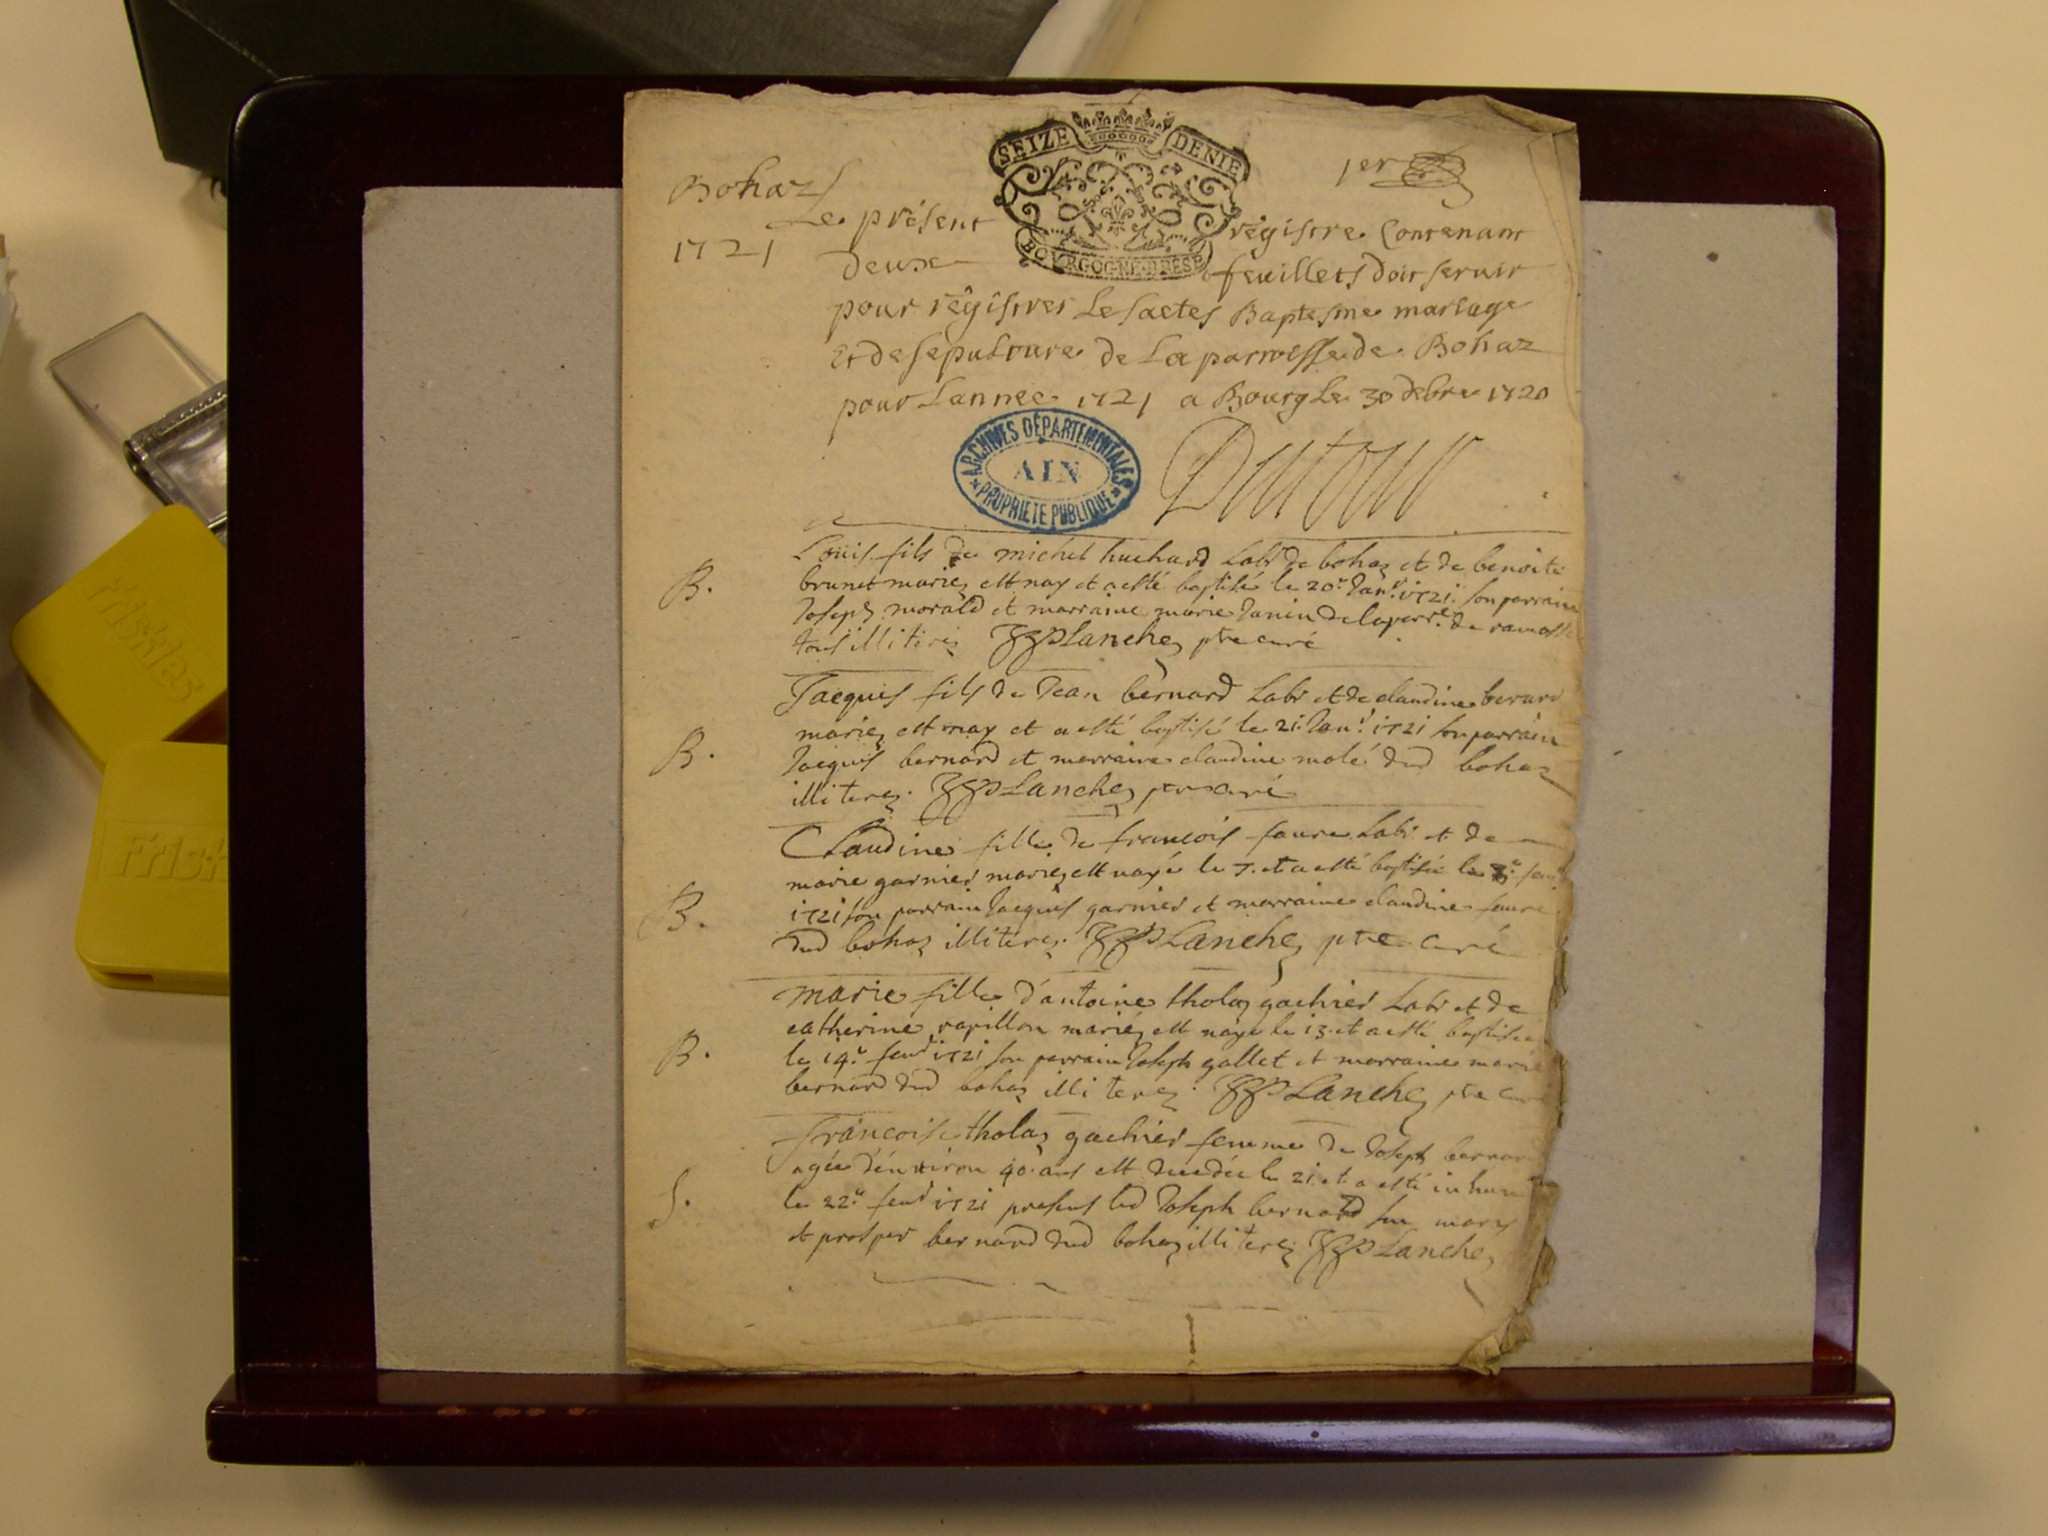 SEIZE DENIE
BOURGOGNE BRESE
Bohaz
1721
1er
Le présent régistre Contenant
deux feuillets doit servir
pour régistrer Les actes Baptesme mariage
Et de sepulture de La parroisse de Bohaz
pour Lannee 1721 a Bourg Le 30 debre 1720
ARCHIVES DÉPARTEMENTALES
AIN
PROPRIETE PUBLIQUE
Dutour
B.
Loüis fils de michel huchard Labr de bohaz et de benoite
brunet mariez est nay et a esté baptisé le 20e Janr 1721 son parrain
Joseph morald et marraine marie Janin de la parre de ramasse
tous illiterez Lanchez ptre curé
B.
Jacques fils de Jean bernard Labr et de claudine berard
mariez est nay et a esté baptisé le 21 Janr 1721 son parrain
Jacques bernard et marraine claudine molé dud bohaz
illiterez. Lanchez ptre curé
B.
Claudine fille de francois faure Labr et de
marie garnier mariez est nayé le 7. et a esté baptisée le 8e
1721 son parrain Jacques garnier et marraine claudine faure
dud bohaz illiterez. Lanchez ptre curé
B.
marie fille d'antoine tholaz gachier Labr et de
catherine papillon mariéz est nayé le 13. et a esté baptisée
le 14e feur 1721 son parrain Joseph gallet et marraine marie
bernard dud bohaz illiterez. Lanchez ptre curé
S.
francoise tholaz gachier femme de Joseph bernard
agée d'environ 40 ans est decedée le 21. et a esté inhumé
le 22e feur 1721 presens led Joseph bernard son mary
et prosper bernard dud bohaz illiterez Lanchez
Friskies
Frisk